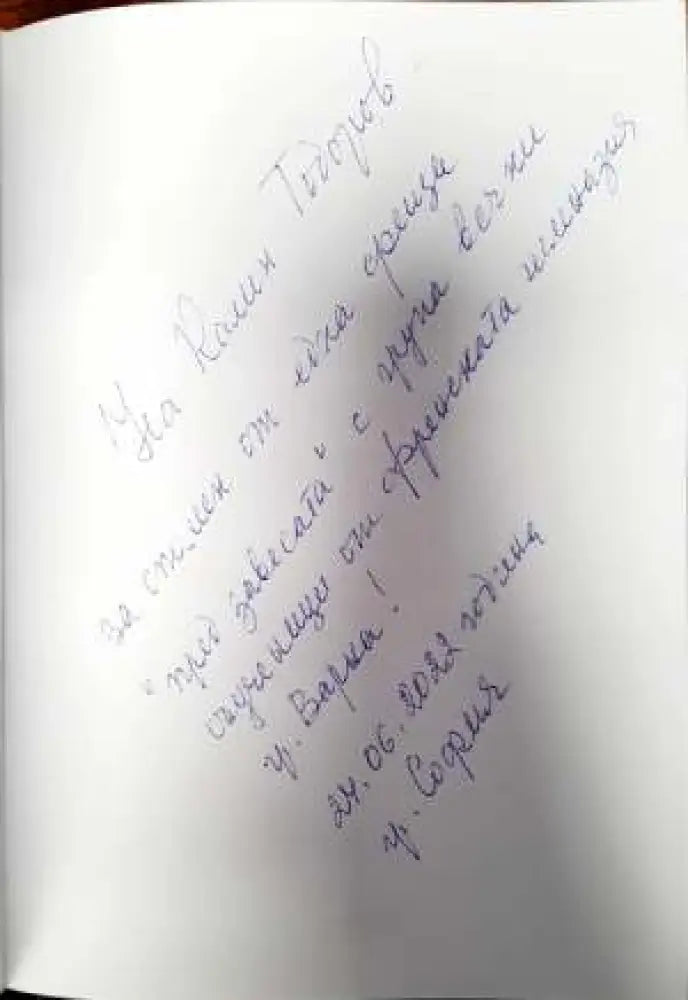 На Калин Тодоров
за спомен от една среща
"пред завесата" с група вечни
съученици от френската гимназия
гр. Варна!
24.06.2022 година
гр. София